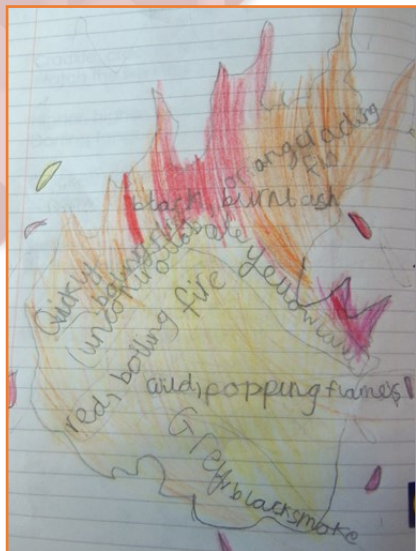 orang crackling
fir
black, burnt ash
Quickly
(uncontrollable yellow
red, boiling fire
popping flames
Grey, black smoke